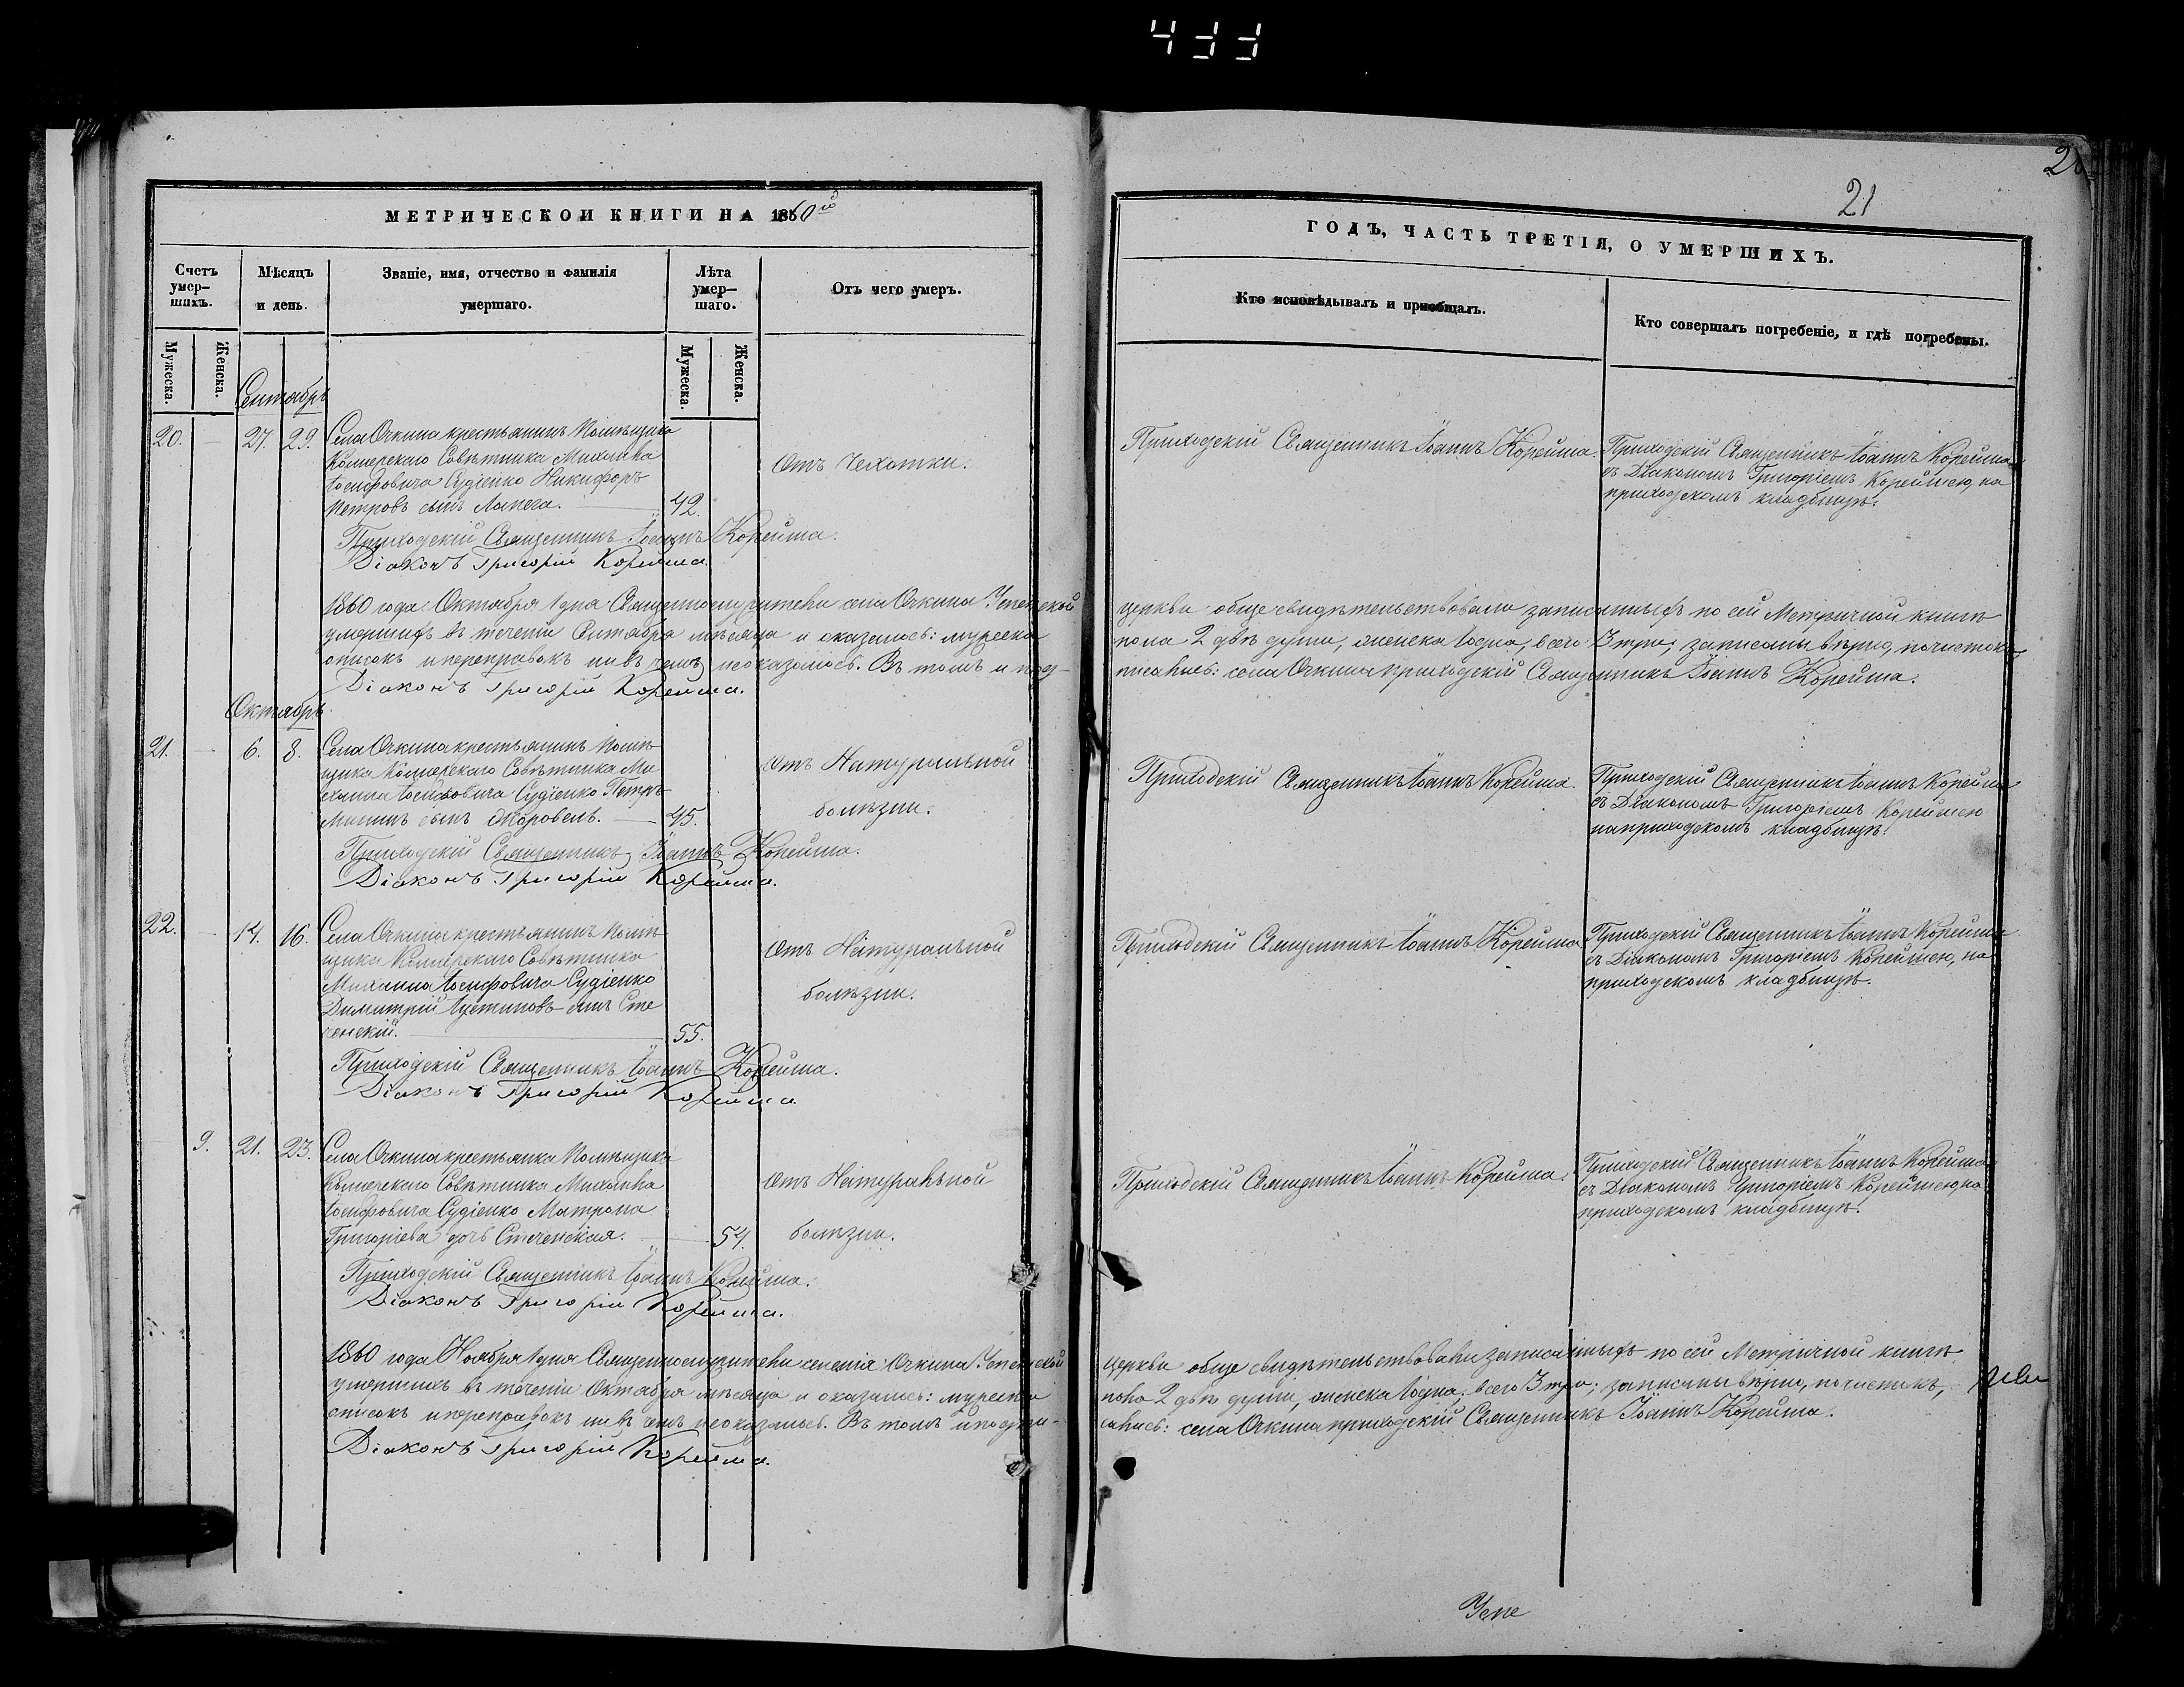 433
МЕТРИЧЕСКОИ КНИГИ НА 1860й
Счетъ умер-шихъ.
Мужеска.
Женска.
Мѣсяцъ и день.
Званіе, имя, отчество и фамилія умершаго.
Лѣта умер-шаго.
Мужеска.
Женска.
Отъ чего умеръ.
Сентябрь
20. — 27. 29. Села Очкина крестьянинъ Помѣщика
Коллерскаго Совѣтника Михаила
Іосифовича Судіенко Никифоръ
Петровъ сынъ Лапега. 42.
Отъ Чехотки.
Приходскій Священникъ Іоаннъ Корейша.
Діаконъ Григорій Корейша.
1860 года Октября 1 дня Священнослужители села Очкина Успенской
умершихъ въ теченіи Сентября мѣсяца и оказалось: мужеска
описокъ и переправокъ ни въ чемъ неоказалось. Въ томъ и под-
Діаконъ Григорій Корейша.
Октябрь
21. — 6. 8. Села Очкина крестьянинъ Помѣ-
щика Коллерскаго Совѣтника Ми
хаила Іосифовича Судіенко Петръ
сынъ 45.
Отъ Натуральной
болѣзни.
Приходскій Священникъ Іоаннъ Корейша.
Діаконъ Григорій Корейша.
22. — 14. 16. Села Очкина крестьянинъ Помѣ
щика Коллерскаго Совѣтника
Михаила Іосифовича Судіенко
Димитрій Іустиновъ сынъ Сте
ченскій. 55.
Отъ Натуральной
болѣзни.
Приходскій Священникъ Іоаннъ Корейша.
Діаконъ Григорій Корейша.
9. 21. 23. Села Очкина крестьянка Помѣщика
Коллерскаго Совѣтника Михаила
Іосифовича Судіенко Матрона
Григоріева дочь Стеченская. 54.
Отъ Натуральной
болѣзни.
Приходскій Священникъ Іоаннъ Корейша.
Діаконъ Григорій Корейша.
1860 года Ноября 1 дня Священнослужители селенія Очкина Успенской
умершихъ въ теченіи Октября мѣсяца и оказалось: мужеска
описокъ и переправокъ ни въ чемъ неоказалось. Въ томъ и подпи-
Діаконъ Григорій Корейша.
21
ГОДЪ, ЧАСТЬ ТРЕТІЯ, О УМЕРШИХЪ.
Кто исповѣдывалъ и приобщалъ.
Кто совершалъ погребеніе, и гдѣ погребены.
Приходскій Священникъ Іоаннъ Корейша.
Приходскій Священникъ Іоаннъ Корейша
съ Діакономъ Григоріемъ Корейшею, на
приходскомъ кладбищѣ.
церкви обще свидѣтельствовали записанныхъ по сей Метричной книгѣ
пола 2 двѣ души, женска 1 одна, всего 3 три; записаны вѣрно, почистокъ,
писались: села Очкина приходскій Священникъ Іоаннъ Корейша.
Приходскій Священникъ Іоаннъ Корейша.
Приходскій Священникъ Іоаннъ Корейша
съ Діакономъ Григоріемъ Корейшею
на приходскомъ кладбищѣ.
Приходскій Священникъ Іоаннъ Корейша
Приходскій Священникъ Іоаннъ Корейша
съ Діакономъ Григоріемъ Корейшею, на
приходскомъ кладбищѣ.
Приходскій Священникъ Іоаннъ Корейша.
Приходскій Священникъ Іоаннъ Корейша
съ Діакономъ Григоріемъ Корейшею на
приходскомъ кладбищѣ.
церкви обще свидѣтельствовали записанныхъ по сей Метричной книгѣ
пола 2 двѣ души, женска 1 одна; всего 3 три; записаны вѣрно, почистокъ,
сались: села Очкина приходскій Священникъ Іоаннъ Корейша.
Успе